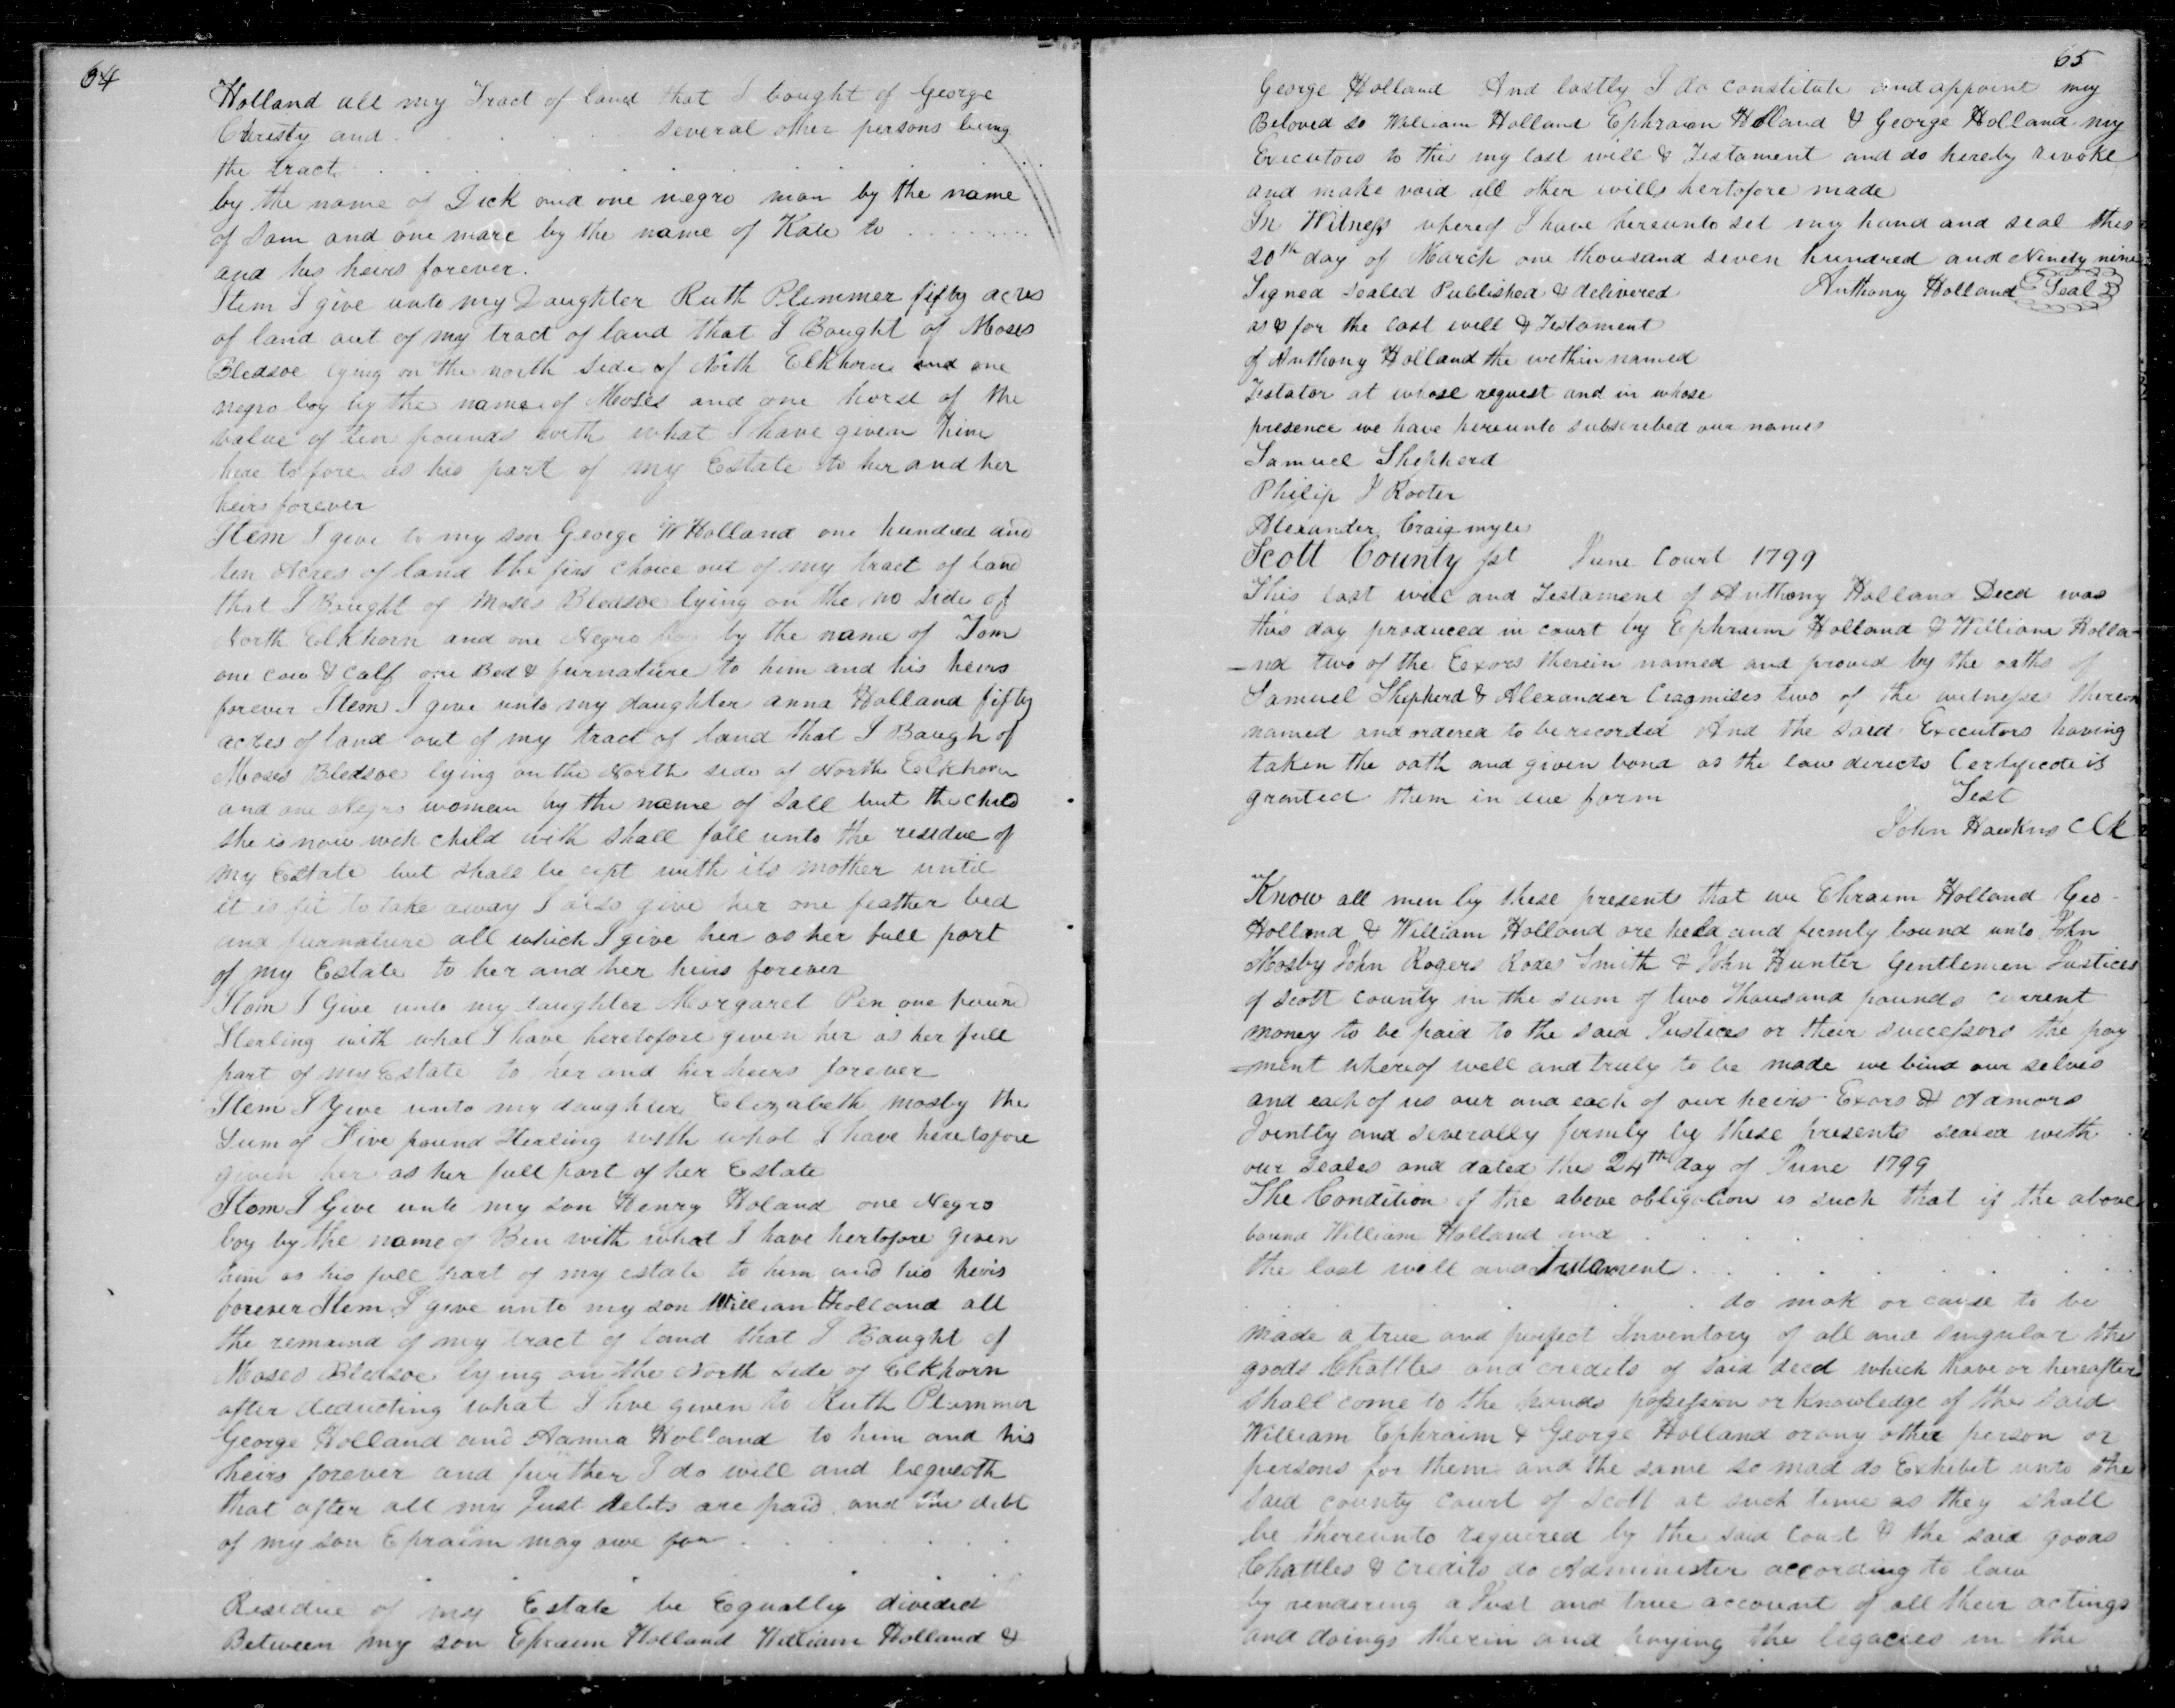 64
Holland all my Tract of land that I bought of George
Christy and . . . . . several other persons being
the tract . . . . . . . . . .
by the name of Dick and one negro man by the name
of Sam and one mare by the name of Kate to . . . . . . . .
and his heirs forever.
Item I give unto my Daughter Ruth Plimmer fifty acres
of land out of my tract of land that I Bought of Moses
Bledsoe lying on the north side of North Elkhorn and one
negro boy by the name of Moses and one horse of the
value of ten pounds with what I have given him
here tofore as his part of my Estate to her and her
heirs forever
Item I give to my son George W Holland one hundred and
ten Acres of land the firs choice out of my tract of land
that I Bought of Moses Bledsoe lying on the no side of
North Elkhorn and one Negro boy by the name of Tom
one cow & calf one Bed & furnature to him and his heirs
forever Item I give unto my daughter anna Holland fifty
acres of land out of my tract of land that I Baugh of
Moses Bledsoe lying on the North side of North Elkhorn
and one Negro woman by the name of Sall but the child
she is now with child with shall fall unto the residue of
my Estate but shall be cept with its mother until
it is fit to take away I also give her one feather bed
and furnature all which I give her as her full part
of my Estate to her and her heirs forever
Item I Give unto my daughter Margaret Pen one pound
Sterling with what I have heretofore given her as her full
part of my Estate to her and her heirs forever
Item I Give unto my daughter Elizabeth mosby the
Sum of Five pound Sterling with what I have heretofore
given her as her full part of her Estate
Item I Give unto my son Henry Holand one Negro
boy by the name of Ben with what I have hertofore given
him as his full part of my estate to him and his heirs
forever Item I give unto my son William Holland all
the remaind of my tract of land that I Baught of
Moses Bledsoe lying on the North side of Elkhorn
after deducting what I hve given to Ruth Plummer
George Holland and Aanna Holland to him and his
heirs forever and further I do will and bequeoth
that after all my Just debts are paid and the debt
of my son Epraim may owe for . . . . . . .
Residue of my Estate be Equally divided
Between my son Ephraim Holland William Holland &
65
George Holland And lastly I do constitute and appoint my
Beloved so William Holland Ephraim Holland & George Holland my
Executors to this my last will & Testament and do hereby revoke
and make void all other wills hertofore made
In Witness wherof I have hereunto set my hand and seal this
20th day of March one thousand seven hundred and Ninety nine
Signed sealed Published & delivered Anthony Holland Seal
as & for the last will & Testament
of Anthony Holland the within named
Testator at whose request and in whose
presence we have hereunto subscribed our names
Samuel Shepherd
Philip J Rooter
Alexander Craigmyle
Scott County sst June Court 1799
This last will and Testament of Anthony Holland Decd was
this day produced in court by Ephraim Holland & William Holla-
-nd two of the Eexors therein named and proved by the oaths of
Samuel Shepherd & Alexander Cragmiles two of the witnesse therein
named and ordered to be recorded And the said Executors having
taken the oath and given bond as the law directs Certificate is
granted them in due form Test
John Hawkns Clk
Know all men by these presents that we Ehraim Holland Geo
Holland & William Holland are held and firmly bound unto John
Mosby John Rogers Rodes Smith & John Hunter Gentlemen Justices
of Scott county in the sum of two thousand pounds current
money to be paid to the said Justices or their successors the pay
=ment whereof well and truly to be made we bind our selves
and each of us our and each of our heirs Exors & Admors
Jointly and severally firmly by these presents sealed with
our seales and dated this 24th day of June 1799
The Condition of the above obligation is such that if the above
bound William Holland and . . . . . .
the last will and Testament . . . . . . .
. . . . . do mak or cause to be
made a true and perfect Inventory of all and singular the
goods Chattles and credits of said decd which have or hereafter
shall come to the hands possession or knowledge of the said
William Ephraim & George Holland or any other person or
persons for them and the same so mad do Exhibit unto the
said county court of Scott at such time as they shall
be thereunto required by the said Court & the said goods
Chattles & credits do Administer according to law
by rendering a Just and true account of all their actings
and doings therin and paying the legacies in the